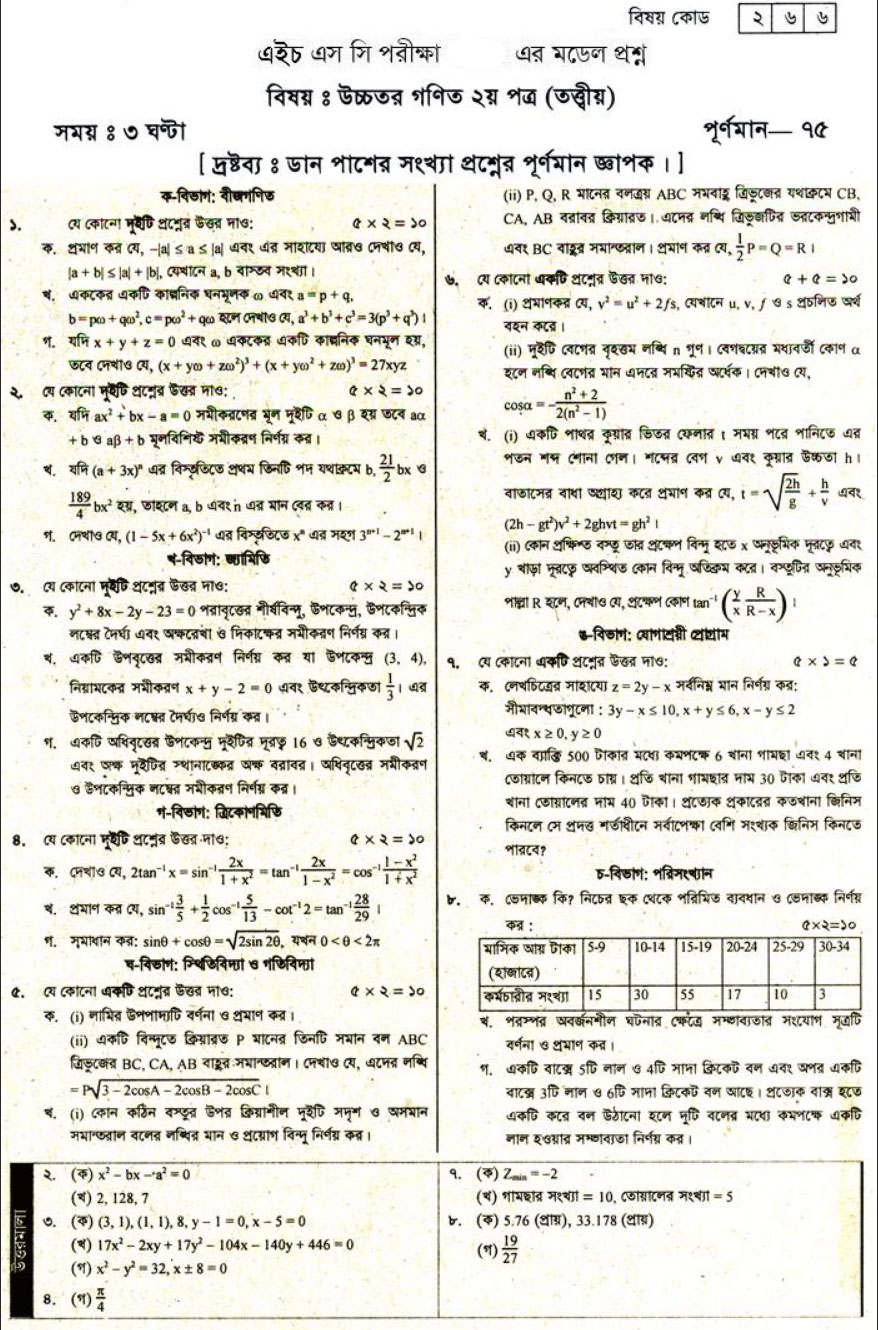 বিষয় কোড ২ ৬ ৬
এইচ এস সি পরীক্ষা এর মডেল প্রশ্ন
বিষয় ঃ উচ্চতর গণিত ২য় পত্র (তত্ত্বীয়)
সময় ঃ ৩ ঘণ্টা পূর্ণমান— ৭৫
[ দ্রষ্টব্য ঃ ডান পাশের সংখ্যা প্রশ্নের পূর্ণমান জ্ঞাপক । ]
ক-বিভাগ: বীজগণিত
১. যে কোনো দুইটি প্রশ্নের উত্তর দাও: ৫ × ২ = ১০
ক. প্রমাণ কর যে, –|a| ≤ a ≤ |a| এবং এর সাহায্যে আরও দেখাও যে,
|a + b| ≤ |a| + |b|, যেখানে a, b বাস্তব সংখ্যা।
খ. এককের একটি কাল্পনিক ঘনমূলক ω এবং a = p + q,
b = pω + qω², c = pω² + qω হলে দেখাও যে, a³ + b³ + c³ = 3(p³ + q³) ।
গ. যদি x + y + z = 0 এবং ω এককের একটি কাল্পনিক ঘনমূল হয়,
তবে দেখাও যে, (x + yω + zω²)³ + (x + yω² + zω)³ = 27xyz
২. যে কোনো দুইটি প্রশ্নের উত্তর দাও: ৫ × ২ = ১০
ক. যদি ax² + bx – a = 0 সমীকরণের মূল দুইটি α ও β হয় তবে aα
+ b ও aβ + b মূলবিশিষ্ট সমীকরণ নির্ণয় কর।
খ. যদি (a + 3x)ⁿ এর বিস্তৃতিতে প্রথম তিনটি পদ যথাক্রমে b, 21/2 bx ও
189/4 bx² হয়, তাহলে a, b এবং n এর মান বের কর।
গ. দেখাও যে, (1 – 5x + 6x²)⁻¹ এর বিস্তৃতিতে xⁿ এর সহগ 3ⁿ⁺¹ – 2ⁿ⁺¹ ।
খ-বিভাগ: জ্যামিতি
৩. যে কোনো দুইটি প্রশ্নের উত্তর দাও: ৫ × ২ = ১০
ক. y² + 8x – 2y – 23 = 0 পরাবৃত্তের শীর্ষবিন্দু, উপকেন্দ্র, উপকেন্দ্রিক
লম্বের দৈর্ঘ্য এবং অক্ষরেখা ও দিকাক্ষের সমীকরণ নির্ণয় কর।
খ. একটি উপবৃত্তের সমীকরণ নির্ণয় কর যা উপকেন্দ্র (3, 4),
নিয়ামকের সমীকরণ x + y – 2 = 0 এবং উৎকেন্দ্রিকতা 1/3। এর
উপকেন্দ্রিক লম্বের দৈর্ঘ্যও নির্ণয় কর।
গ. একটি অধিবৃত্তের উপকেন্দ্র দুইটির দূরত্ব 16 ও উৎকেন্দ্রিকতা √2
এবং অক্ষ দুইটির স্থানাঙ্কের অক্ষ বরাবর। অধিবৃত্তের সমীকরণ
ও উপকেন্দ্রিক লম্বের সমীকরণ নির্ণয় কর।
গ-বিভাগ: ত্রিকোণমিতি
৪. যে কোনো দুইটি প্রশ্নের উত্তর দাও: ৫ × ২ = ১০
ক. দেখাও যে, 2tan⁻¹ x = sin⁻¹ 2x/(1 + x²) = tan⁻¹ 2x/(1 – x²) = cos⁻¹ (1 – x²)/(1 + x²)
খ. প্রমাণ কর যে, sin⁻¹ 3/5 + 1/2 cos⁻¹ 5/13 – cot⁻¹ 2 = tan⁻¹ 28/29 ।
গ. সমাধান কর: sinθ + cosθ = √(2sin 2θ), যখন 0 < θ < 2π
ঘ-বিভাগ: স্থিতিবিদ্যা ও গতিবিদ্যা
৫. যে কোনো একটি প্রশ্নের উত্তর দাও: ৫ × ২ = ১০
ক. (i) লামির উপপাদ্যটি বর্ণনা ও প্রমাণ কর।
(ii) একটি বিন্দুতে ক্রিয়ারত P মানের তিনটি সমান বল ABC
ত্রিভুজের BC, CA, AB বাহুর সমান্তরাল। দেখাও যে, এদের লব্ধি
= P√(3 – 2cosA – 2cosB – 2cosC) ।
খ. (i) কোন কঠিন বস্তুর উপর ক্রিয়াশীল দুইটি সদৃশ ও অসমান
সমান্তরাল বলের লব্ধির মান ও প্রয়োগ বিন্দু নির্ণয় কর।
(ii) P, Q, R মানের বলত্রয় ABC সমবাহু ত্রিভুজের যথাক্রমে CB,
CA, AB বরাবর ক্রিয়ারত। এদের লব্ধি ত্রিভুজটির ভরকেন্দ্রগামী
এবং BC বাহুর সমান্তরাল। প্রমাণ কর যে, 1/2 P = Q = R ।
৬. যে কোনো একটি প্রশ্নের উত্তর দাও: ৫ + ৫ = ১০
ক. (i) প্রমাণকর যে, v² = u² + 2fs, যেখানে u, v, f ও s প্রচলিত অর্থ
বহন করে।
(ii) দুইটি বেগের বৃহত্তম লব্ধি n গুণ। বেগদ্বয়ের মধ্যবর্তী কোণ α
হলে লব্ধি বেগের মান এদরে সমষ্টির অর্ধেক। দেখাও যে,
cosα = – (n² + 2)/(2(n² – 1))
খ. (i) একটি পাথর কুয়ার ভিতর ফেলার t সময় পরে পানিতে এর
পতন শব্দ শোনা গেল। শব্দের বেগ v এবং কুয়ার উচ্চতা h।
বাতাসের বাধা অগ্রাহ্য করে প্রমাণ কর যে, t = √(2h/g) + h/v এবং
(2h – gt²)v² + 2ghvt = gh² ।
(ii) কোন প্রক্ষিপ্ত বস্তু তার প্রক্ষেপ বিন্দু হতে x অনুভূমিক দূরত্বে এবং
y খাড়া দূরত্বে অবস্থিত কোন বিন্দু অতিক্রম করে। বস্তুটির অনুভূমিক
পাল্লা R হলে, দেখাও যে, প্রক্ষেপ কোণ tan⁻¹ (y/x R/(R – x)) ।
ঙ-বিভাগ: যোগাশ্রয়ী প্রোগ্রাম
৭. যে কোনো একটি প্রশ্নের উত্তর দাও: ৫ × ১ = ৫
ক. লেখচিত্রের সাহায্যে z = 2y – x সর্বনিম্ন মান নির্ণয় কর:
সীমাবদ্ধতাগুলো : 3y – x ≤ 10, x + y ≤ 6, x – y ≤ 2
এবং x ≥ 0, y ≥ 0
খ. এক ব্যক্তি 500 টাকার মধ্যে কমপক্ষে 6 খানা গামছা এবং 4 খানা
তোয়ালে কিনতে চায়। প্রতি খানা গামছার দাম 30 টাকা এবং প্রতি
খানা তোয়ালের দাম 40 টাকা। প্রত্যেক প্রকারের কতখানা জিনিস
কিনলে সে প্রদত্ত শর্তাধীনে সর্বাপেক্ষা বেশি সংখ্যক জিনিস কিনতে
পারবে?
চ-বিভাগ: পরিসংখ্যান
৮. ক. ভেদাঙ্ক কি? নিচের ছক থেকে পরিমিত ব্যবধান ও ভেদাঙ্ক নির্ণয়
কর : ৫×২=১০
মাসিক আয় টাকা 5-9 10-14 15-19 20-24 25-29 30-34
(হাজারে)
কর্মচারীর সংখ্যা 15 30 55 17 10 3
খ. পরস্পর অবর্জনশীল ঘটনার ক্ষেত্রে সম্ভাব্যতার সংযোগ সূত্রটি
বর্ণনা ও প্রমাণ কর।
গ. একটি বাক্সে 5টি লাল ও 4টি সাদা ক্রিকেট বল এবং অপর একটি
বাক্সে 3টি লাল ও 6টি সাদা ক্রিকেট বল আছে। প্রত্যেক বাক্স হতে
একটি করে বল উঠানো হলে দুটি বলের মধ্যে কমপক্ষে একটি
লাল হওয়ার সম্ভাব্যতা নির্ণয় কর।
উত্তরমালা
২. (ক) x² – bx – a² = 0
(খ) 2, 128, 7
৩. (ক) (3, 1), (1, 1), 8, y – 1 = 0, x – 5 = 0
(খ) 17x² – 2xy + 17y² – 104x – 140y + 446 = 0
(গ) x² – y² = 32, x ± 8 = 0
৪. (গ) π/4
৭. (ক) Zmin = –2
(খ) গামছার সংখ্যা = 10, তোয়ালের সংখ্যা = 5
৮. (ক) 5.76 (প্রায়), 33.178 (প্রায়)
(গ) 19/27